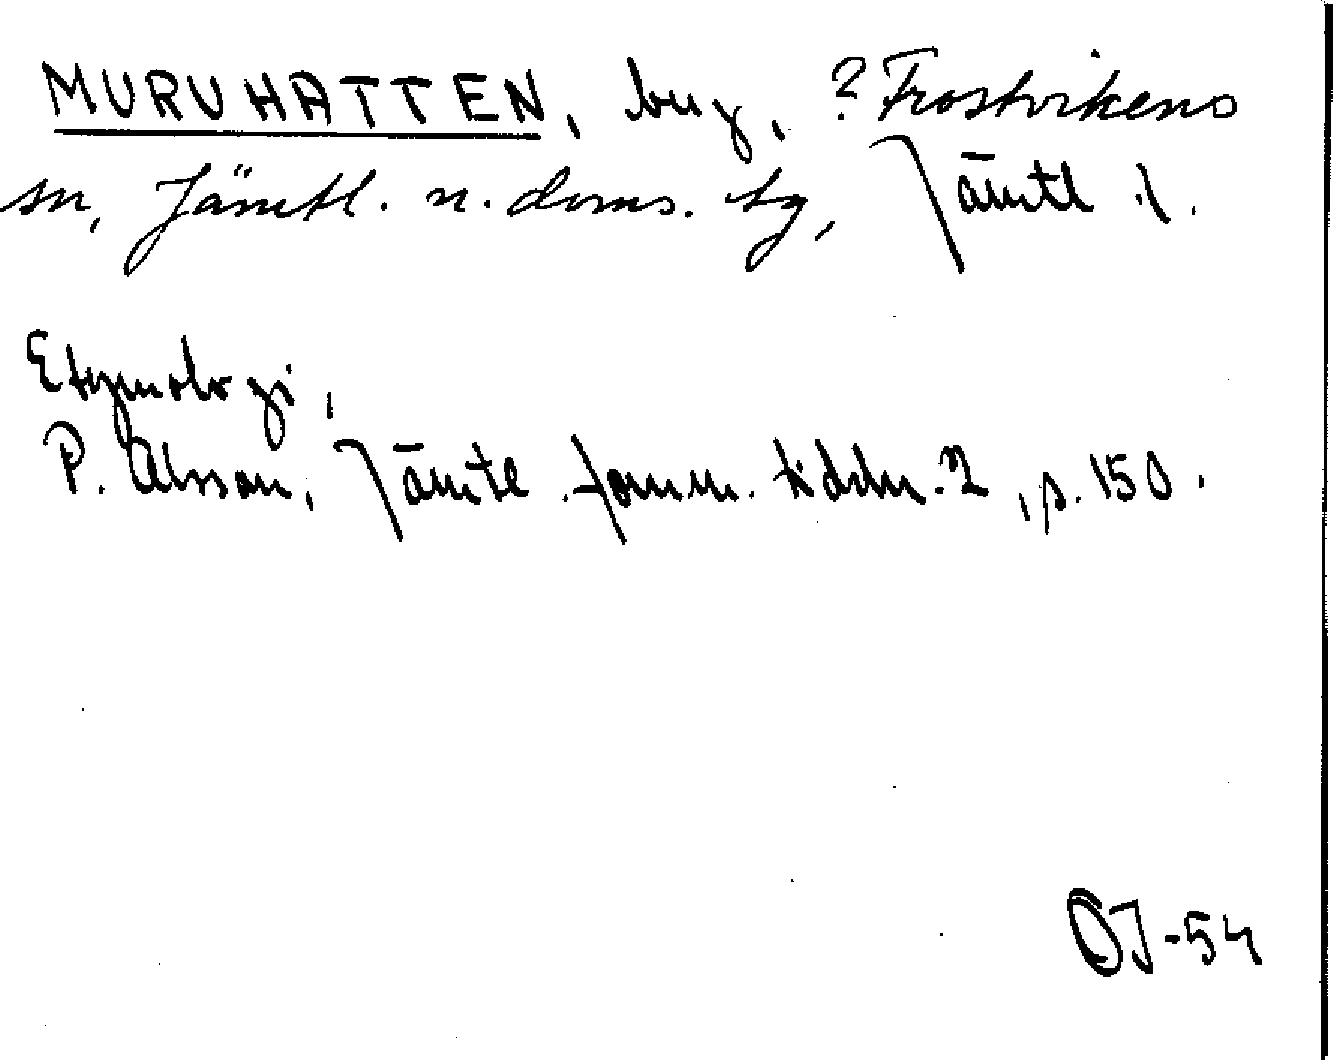 MURUHATTEN, berg, ? Frostvikens
sn, Jämtl. n. doms. tg, Jämtl. l.
Etymologi,
P. Olsson, Jämtl. fornm. tidskr. 2, s. 150.
OJ-54